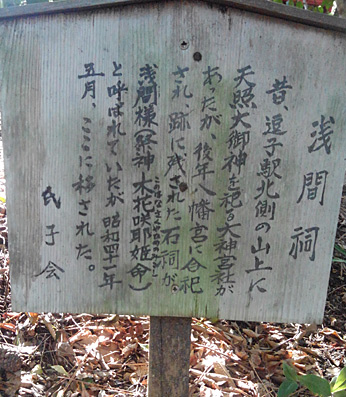 浅間祠
昔、逗子駅北側の山上に
天照大御神を祀る大神宮社が
あったが、後年八幡宮に合祀
され、跡に残された石祠が、
浅間様(祭神 木花咲耶姫命)
と呼ばれていたが昭和四十一年
五月、ここに移された。
氏子会